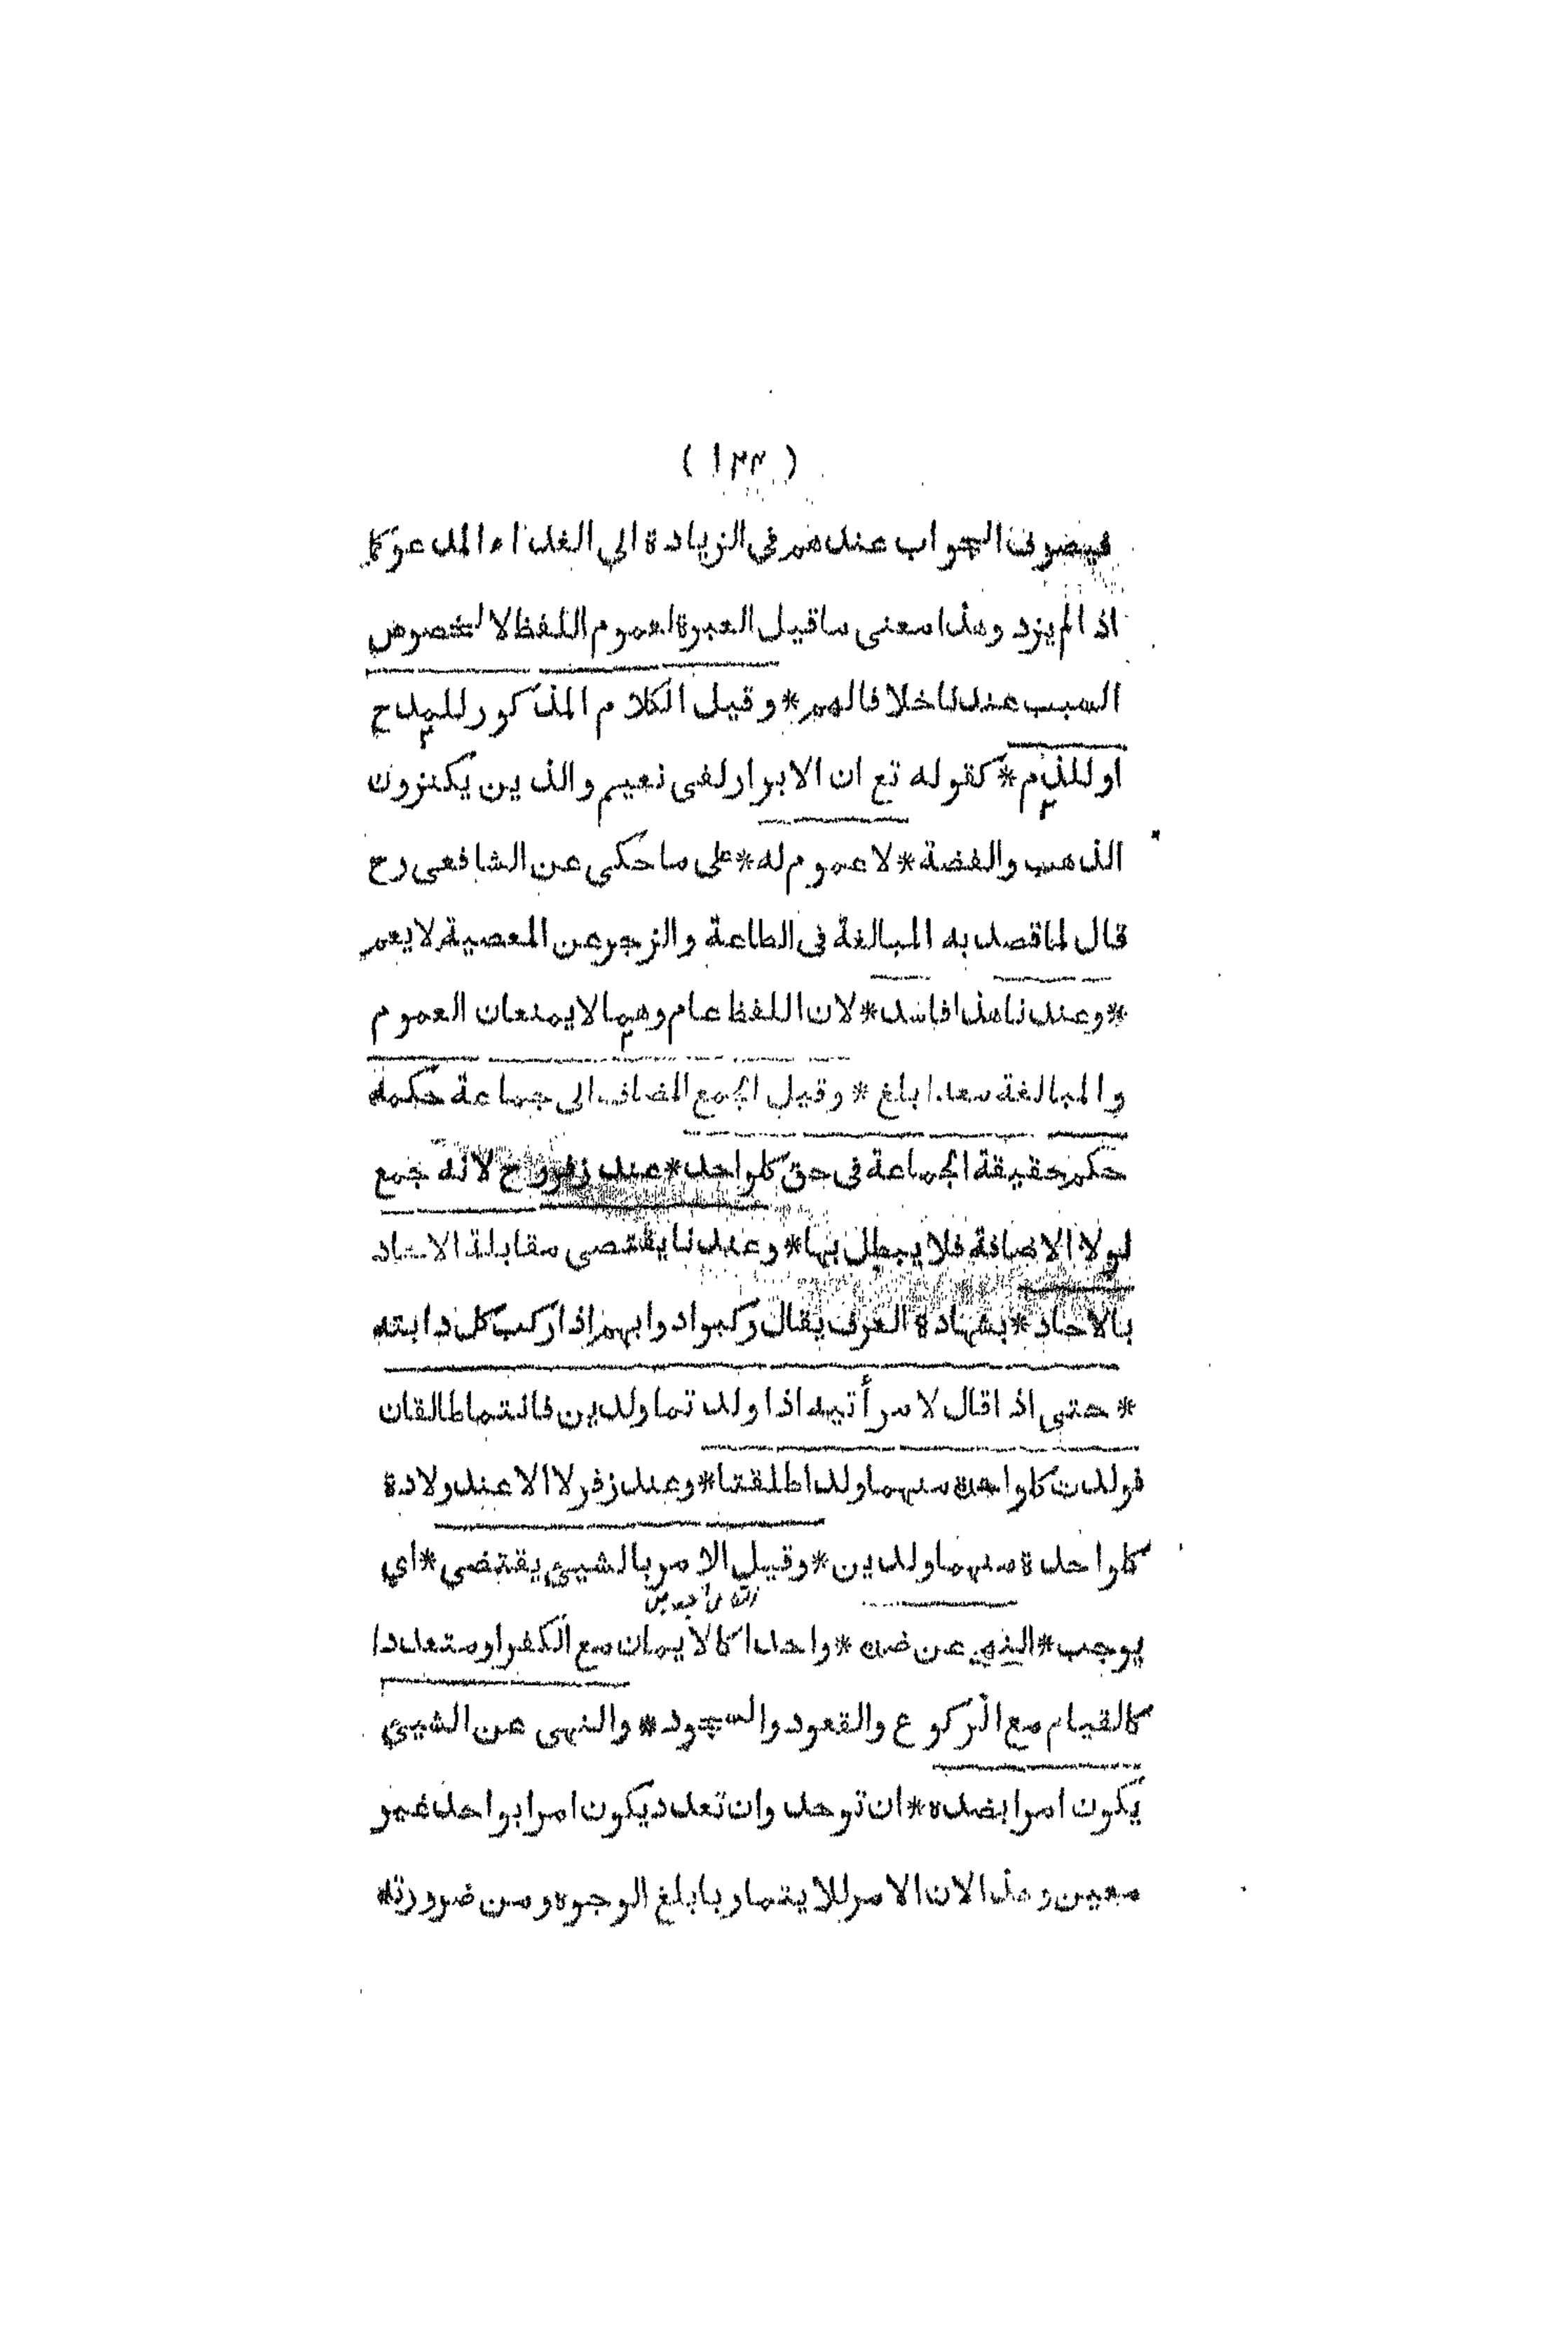 ( ١٣٣ )
فيصرف الجواب عندهم في الزيادة الي الغداء المدعو كا
اذا لم يزد وهذا معنى ما قيل العبرة لعموم اللفظ لا لخصوص
السبب عندنا خلافا لهم * وقيل الكلام المذكور للمدح
او للذم * كقوله تع ان الابرار لفى نعيم والذين يكنزون
الذهب والفضة * لا عموم له * على ما حكي عن الشافعى رح
قال لما قصد به المبالغة فى الطاعة والزجر عن المعصية لا يعم
* وعندنا هذا فاسد * لان اللفظ عام وهما لا يمنعان العموم
والمبالغة معه ابلغ * وقيل الجمع المضاف الى جماعة حكمه
حكم حقيقة الجماعة فى حق كل واحد * عند زفر رح لانه جمع
لولا الاضافة فلا يبطل بها * وعندنا يقتضى مقابلة الاحاد
بالاحاد * بشهادة العرف يقال ركبوا دوابهم اذا ركب كل دابته
* حتى اذا قال لامرأتيه اذا ولدتما ولدين فانتما طالقان
فولدت كل واحدة منهما ولدا طلقتا * وعند زفر لا الا عند ولادة
كل واحدة منهما ولدين * وقيل الامر بالشيئ يقتضي * اي
يوجب * النهي عن ضده * واحدا كالايمان مع الكفر او متعددا
كالقيام مع الركوع والقعود والسجود * والنهى عن الشيئ
يكون امرا بضده * ان توحد وان تعدد يكون امرا بواحد غير
معين وهذا لان الامر للايتمار بابلغ الوجوه ومن ضرورته